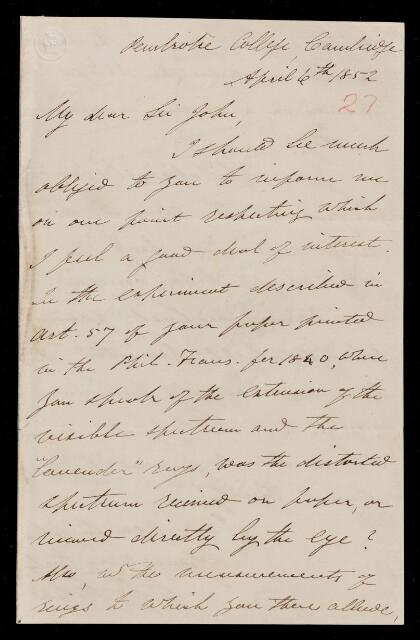 Pembroke College, Cambridge
April 6th 1852
27
My dear Sir John,
I should be much
obliged to you to inform me
on one point respecting which
I feel a good deal of interest.
In the experiment described in
Art. 57 of your paper printed
in the Phil. Trans. for 1840, where
you speak of the extension of the
visible spectrum and the
"lavender" rays, was the distorted
spectrum received on paper, or
viewed directly by the eye?
Also, in the measurements of
rings to which you there allude,